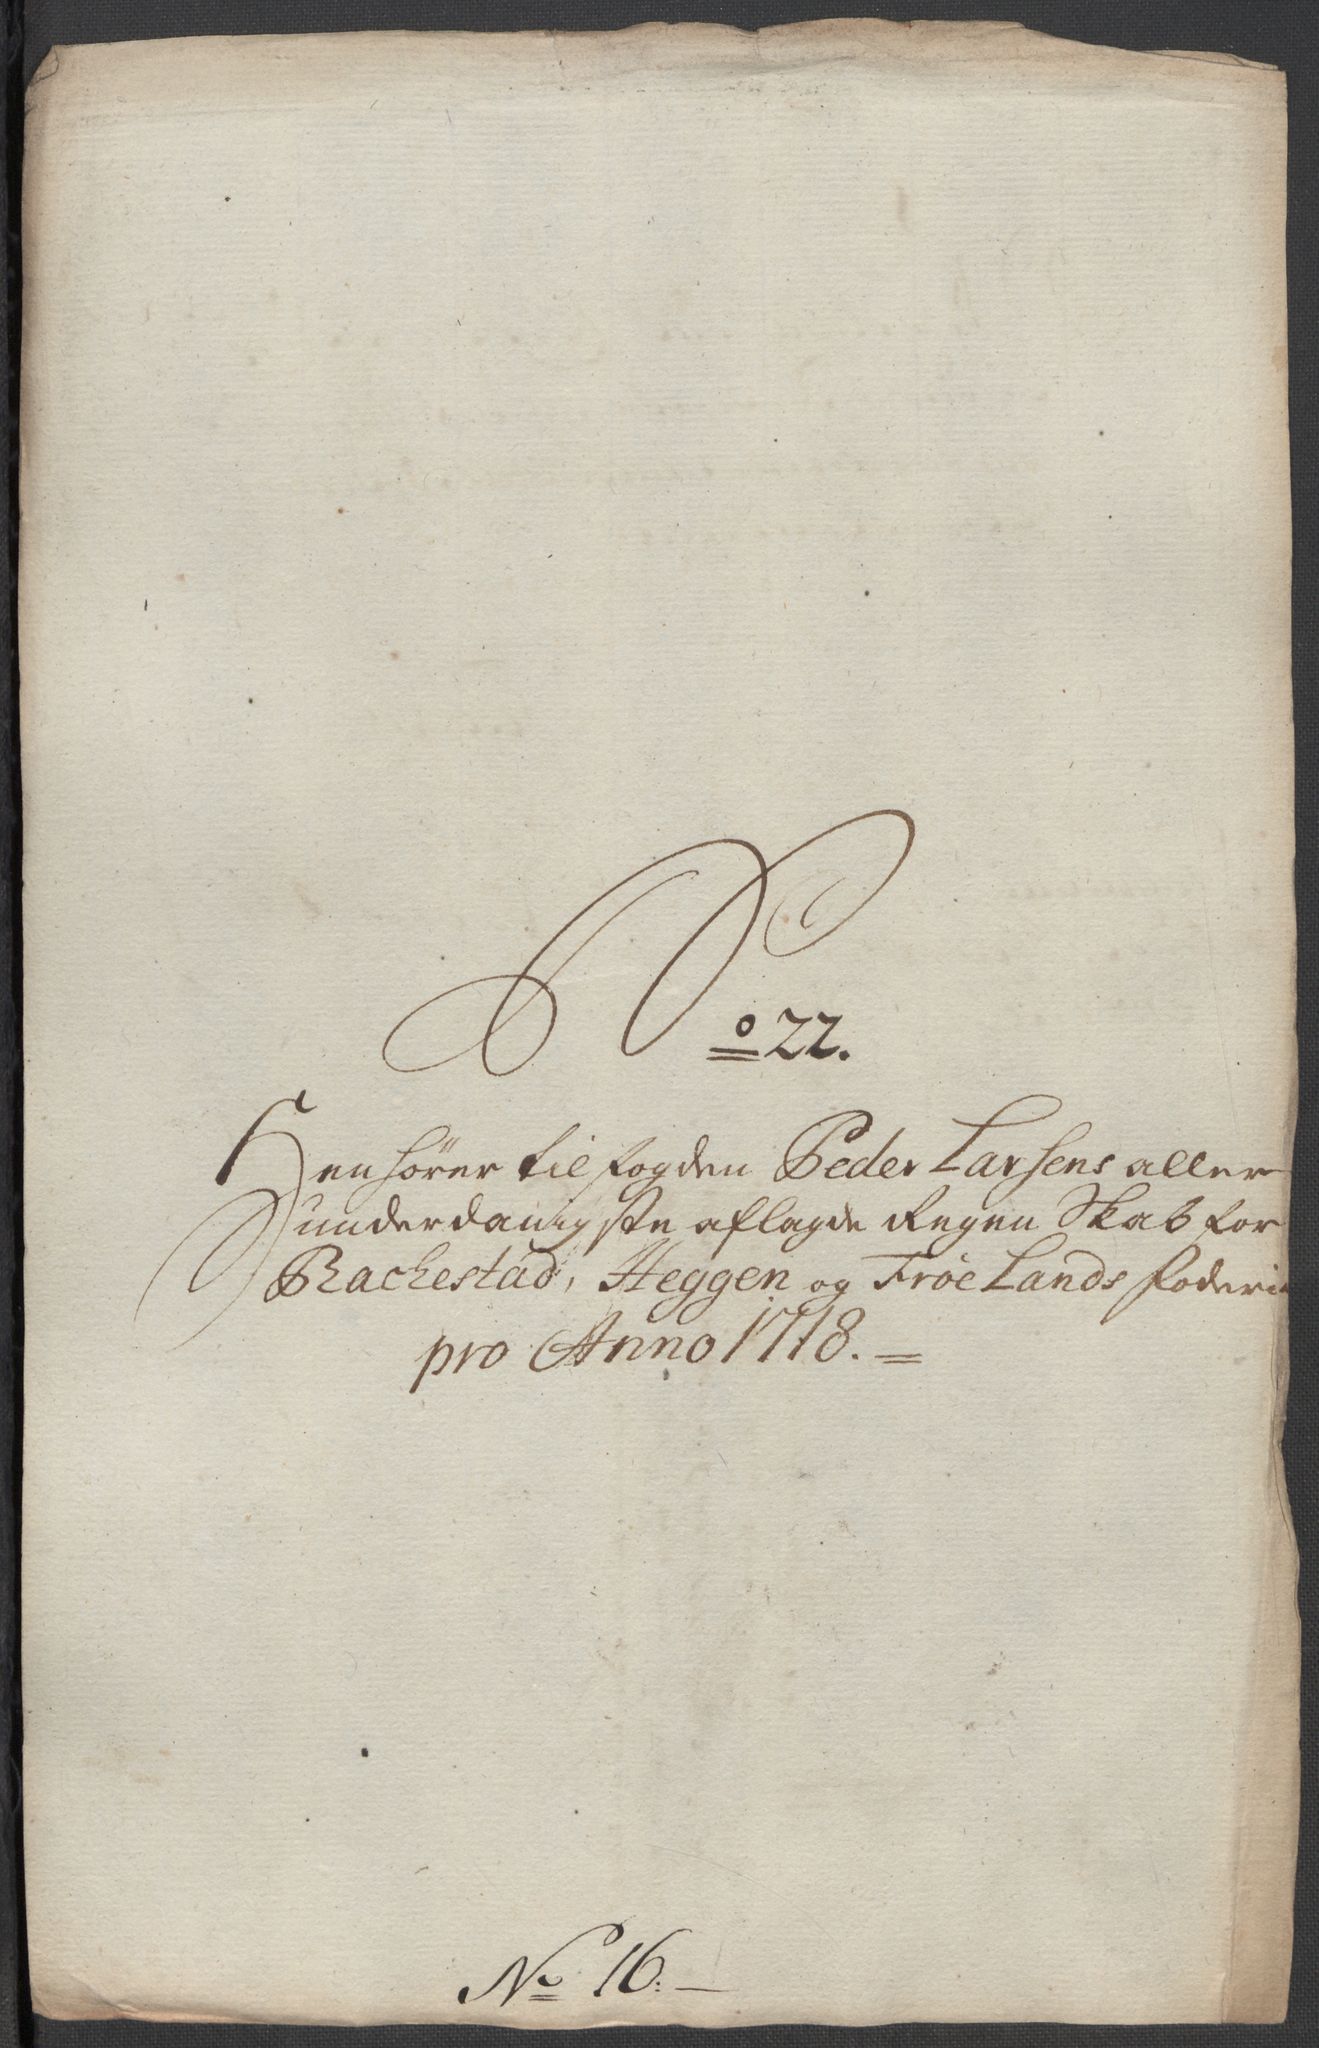 No 22.
Henhører til fogden Peder Larsens aller
underdanigste aflagde Regen Skab for
Rachestad, Heggen og Frøe Lands foderi
pro Anno 1718. =
No 16. —